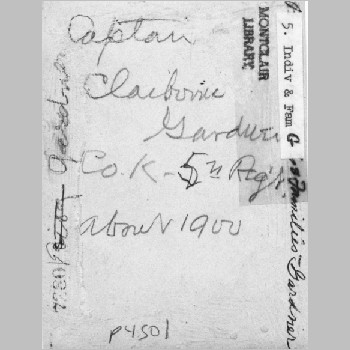 Captain
Claiborne
Gardner
Co. K - 5th Reg't.
about 1900
p4501
MONTCLAIR
LIBRARY
5. Indiv & Fam G
's Families - Gardner
Gardner